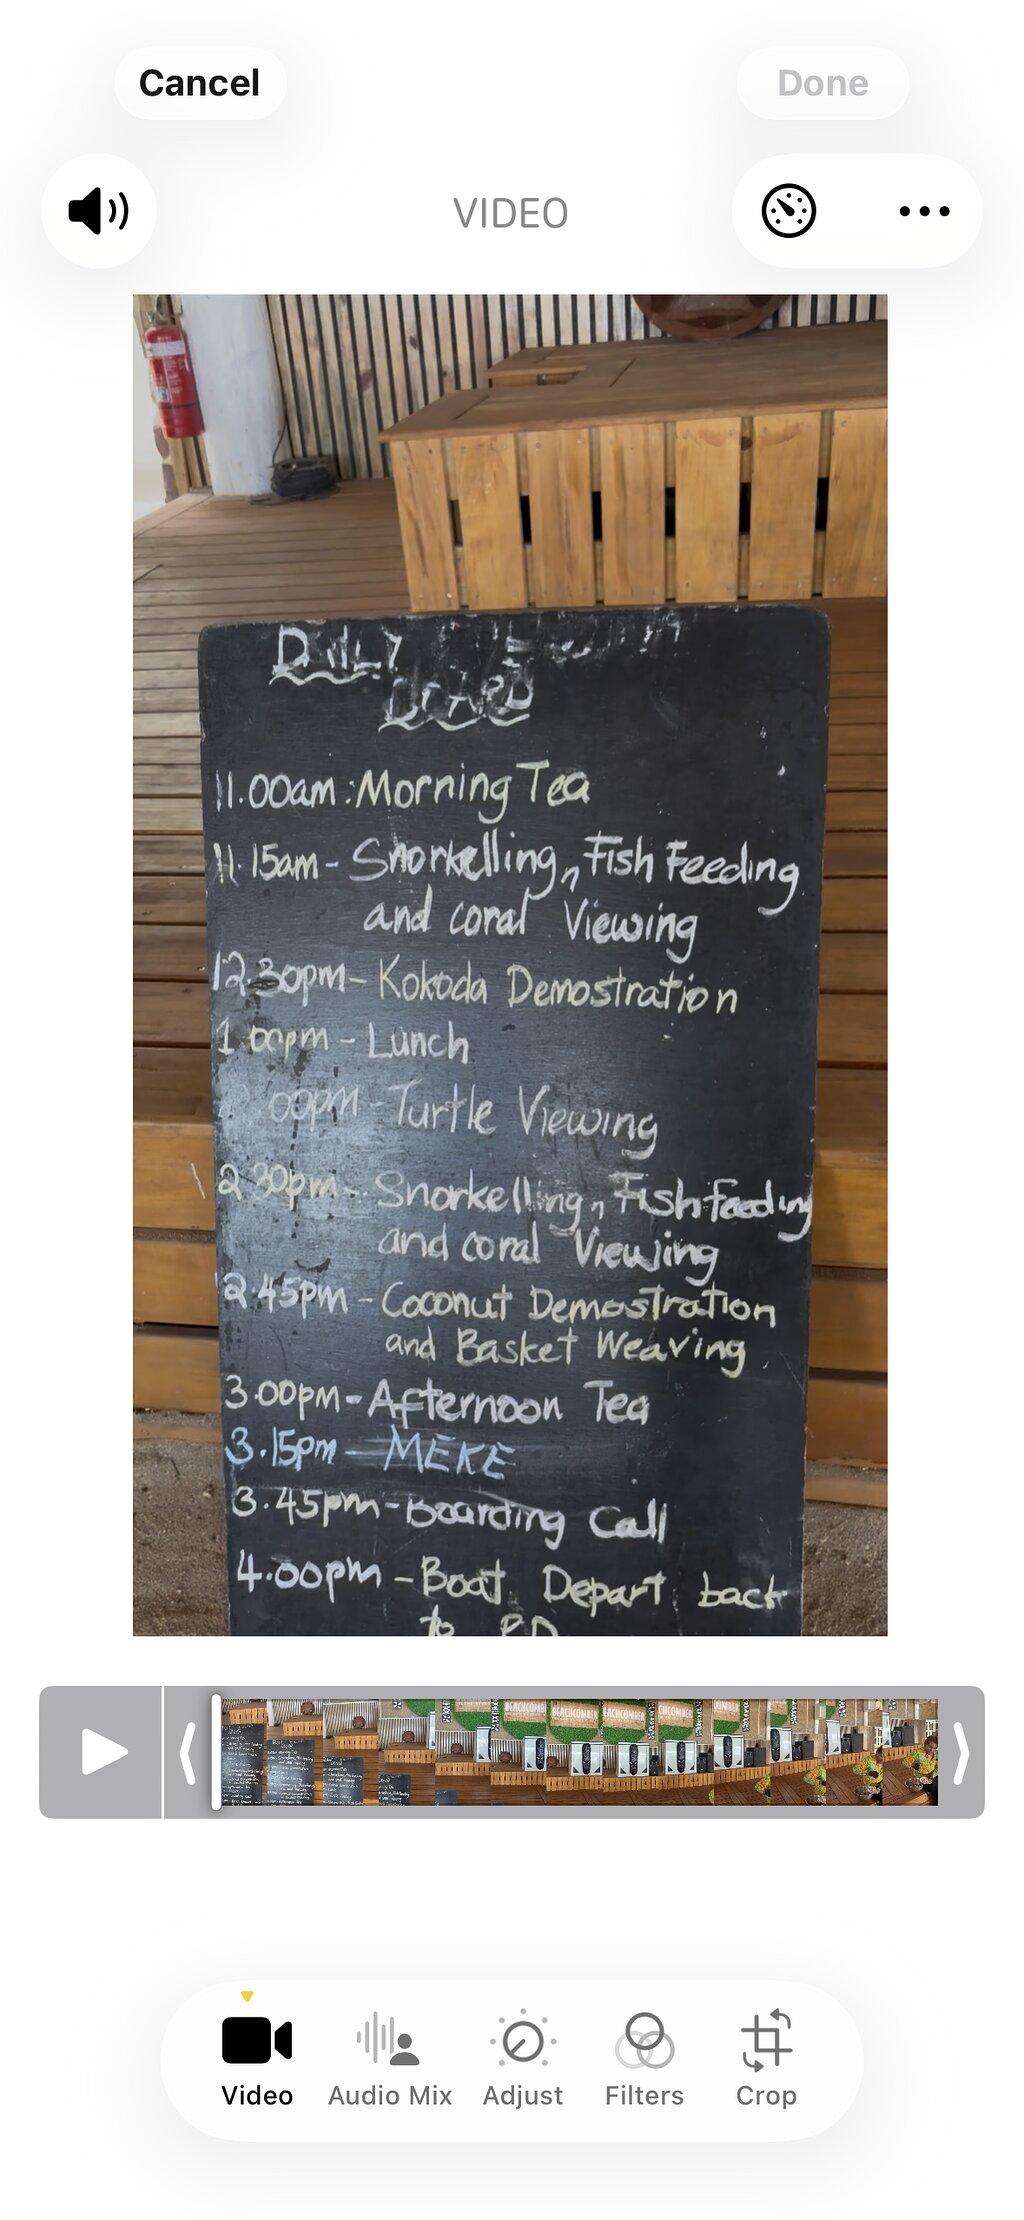 Cancel
Done
VIDEO
DAILY
BOARD
11.00am:Morning Tea
11.15am- Snorkelling, Fish Feeding
and coral Viewing
12.30pm- Kokoda Demostration
1.00pm - Lunch
00pm - Turtle Viewing
2.30pm - Snorkelling, Fish feeding
and coral Viewing
2.45pm - Coconut Demostration
and Basket Weaving
3.00pm - Afternoon Tea
3.15pm - MEKE
3.45pm - Boarding Call
4.00pm - Boat Depart back
to PD
BEACHCOMBER
Video
Audio Mix
Adjust
Filters
Crop